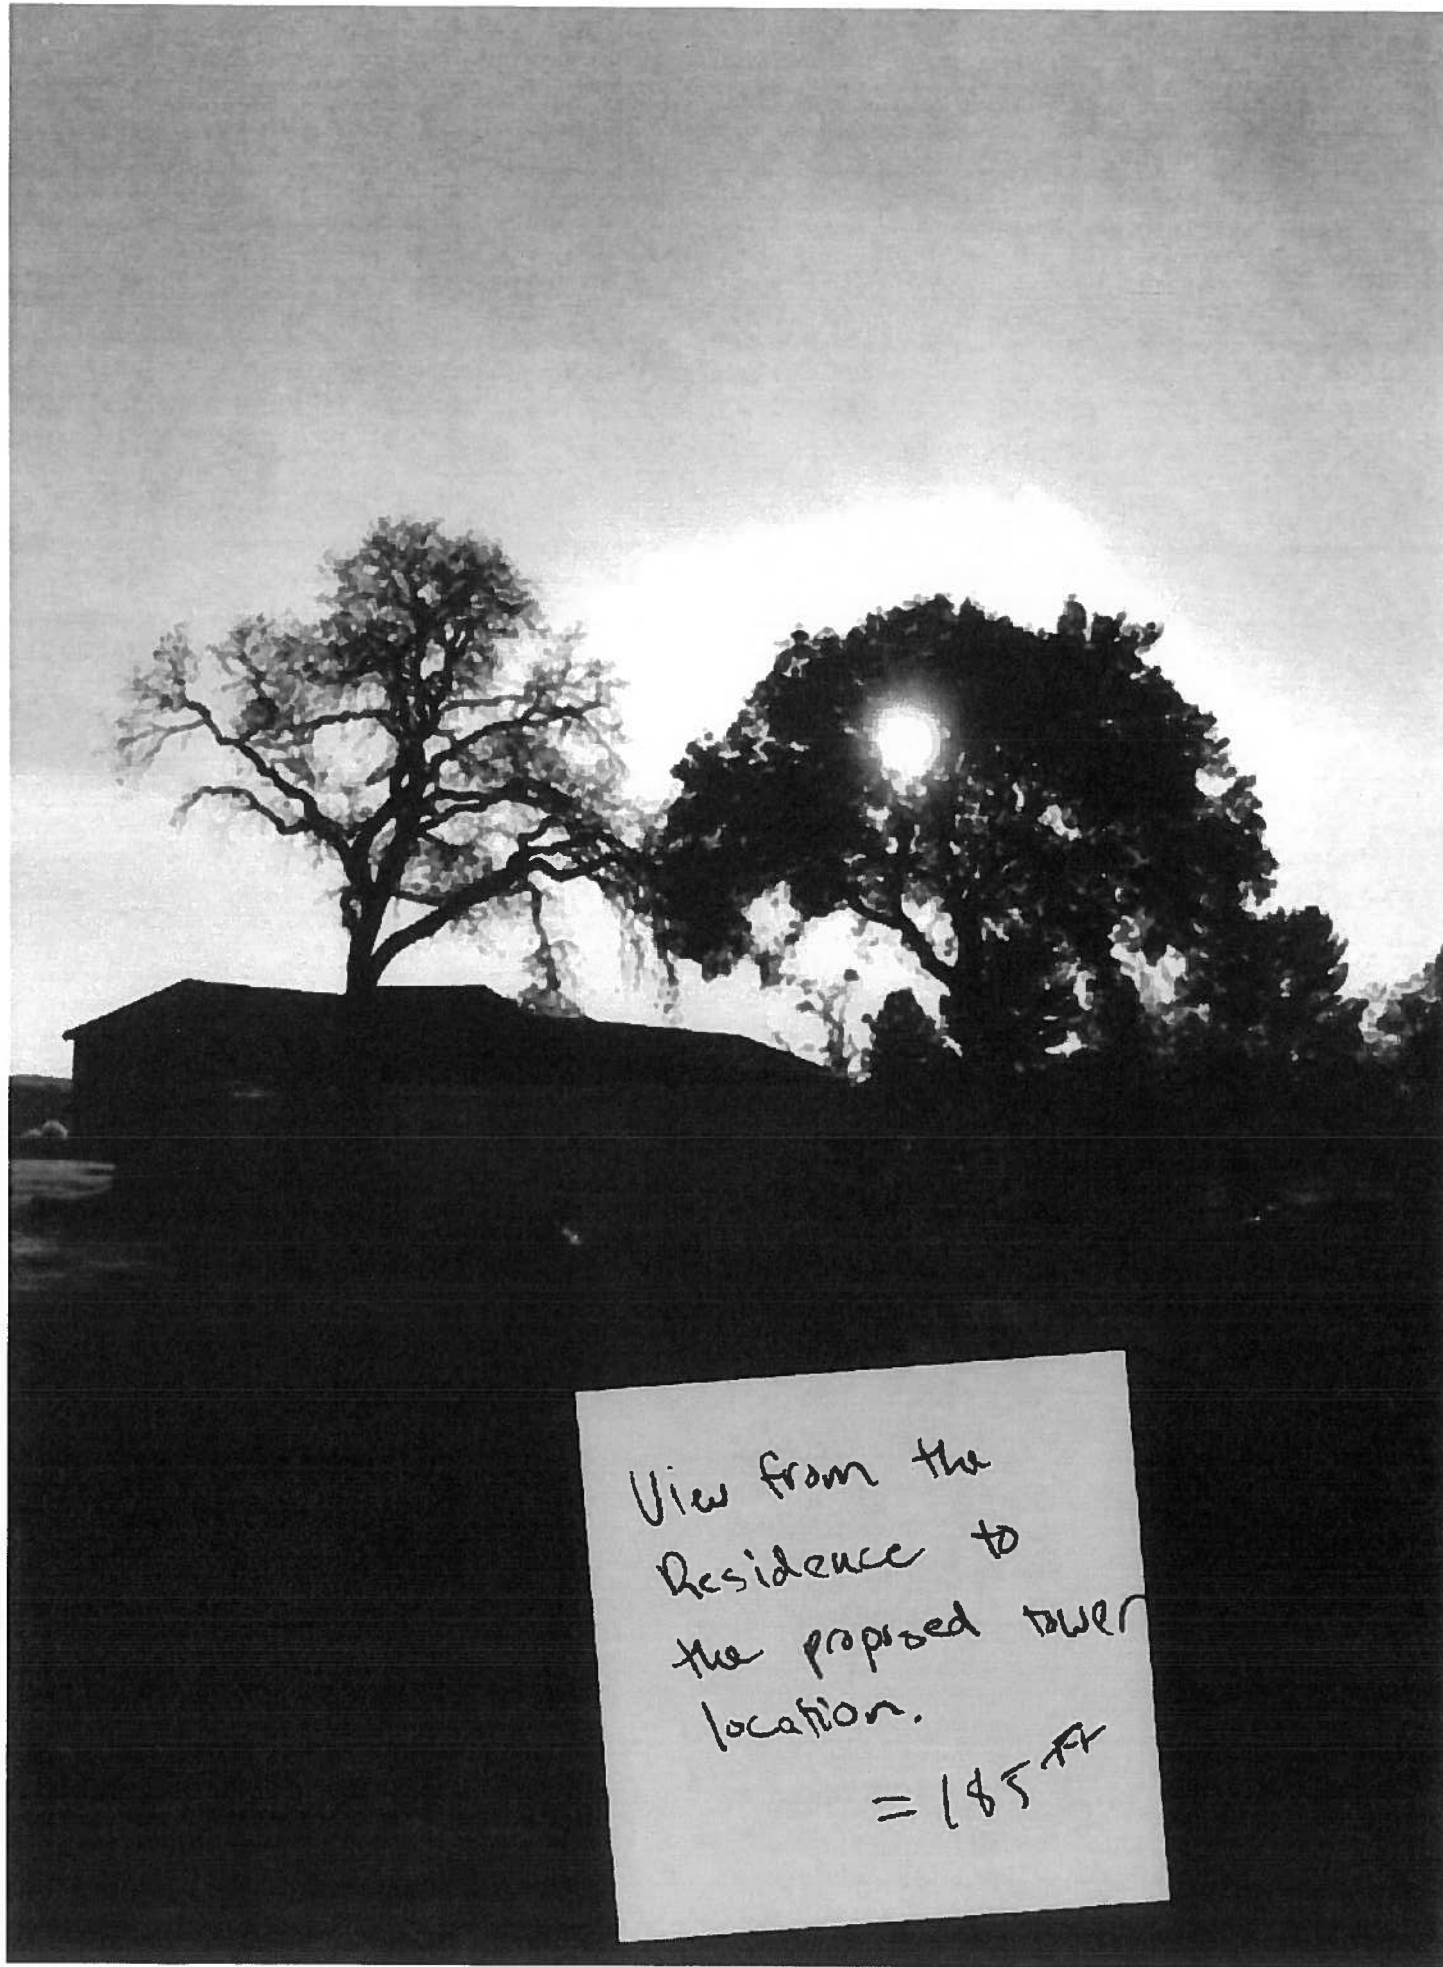 View from the
Residence to
the proposed tower
location.
= 185 ft